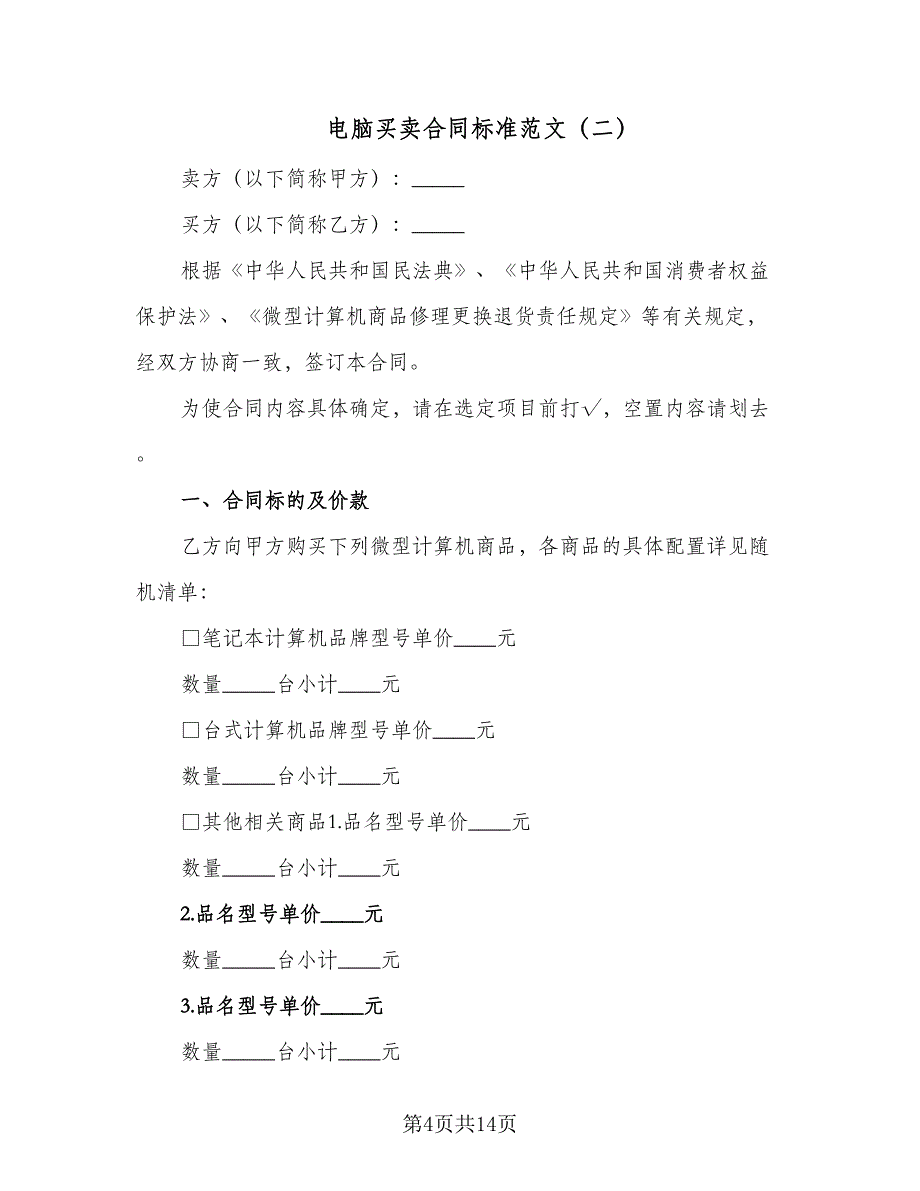 电脑买卖合同标准范文（二）
卖方（以下简称甲方）：_____
买方（以下简称乙方）：_____
根据《中华人民共和国民法典》、《中华人民共和国消费者权益
保护法》、《微型计算机商品修理更换退货责任规定》等有关规定，
经双方协商一致，签订本合同。
为使合同内容具体确定，请在选定项目前打√，空置内容请划去
。
一、合同标的及价款
乙方向甲方购买下列微型计算机商品，各商品的具体配置详见随
机清单：
□笔记本计算机品牌型号单价____元
数量_____台小计____元
□台式计算机品牌型号单价____元
数量_____台小计____元
□其他相关商品1.品名型号单价____元
数量_____台小计____元
2.品名型号单价____元
数量_____台小计____元
3.品名型号单价____元
数量_____台小计____元
第4页共14页